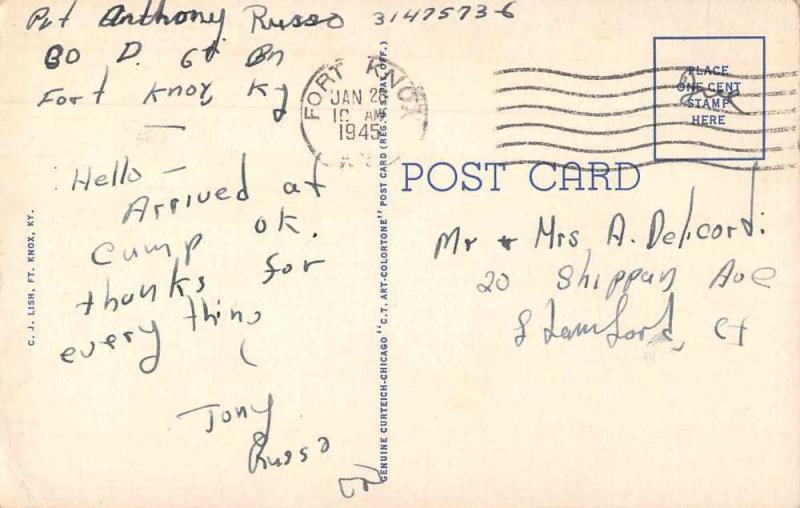 Pvt Anthony Russo 31475736
CO D. 6th Bn
Fort Knox, Ky
Hello —
Arrived at
Camp ok.
thanks for
every thing
Tony
Russo
C. J. LISH, FT. KNOX, KY.
GENUINE CURTEICH-CHICAGO "C.T. ART-COLORTONE" POST CARD (REG. U.S. PAT. OFF.)
FORT KNOX
JAN 2
10 AM
1945
KY.
PLACE
ONE CENT
STAMP
HERE
Free
POST CARD
Mr + Mrs A. Delicordi
20 Shippan Ave
Stamford, Ct